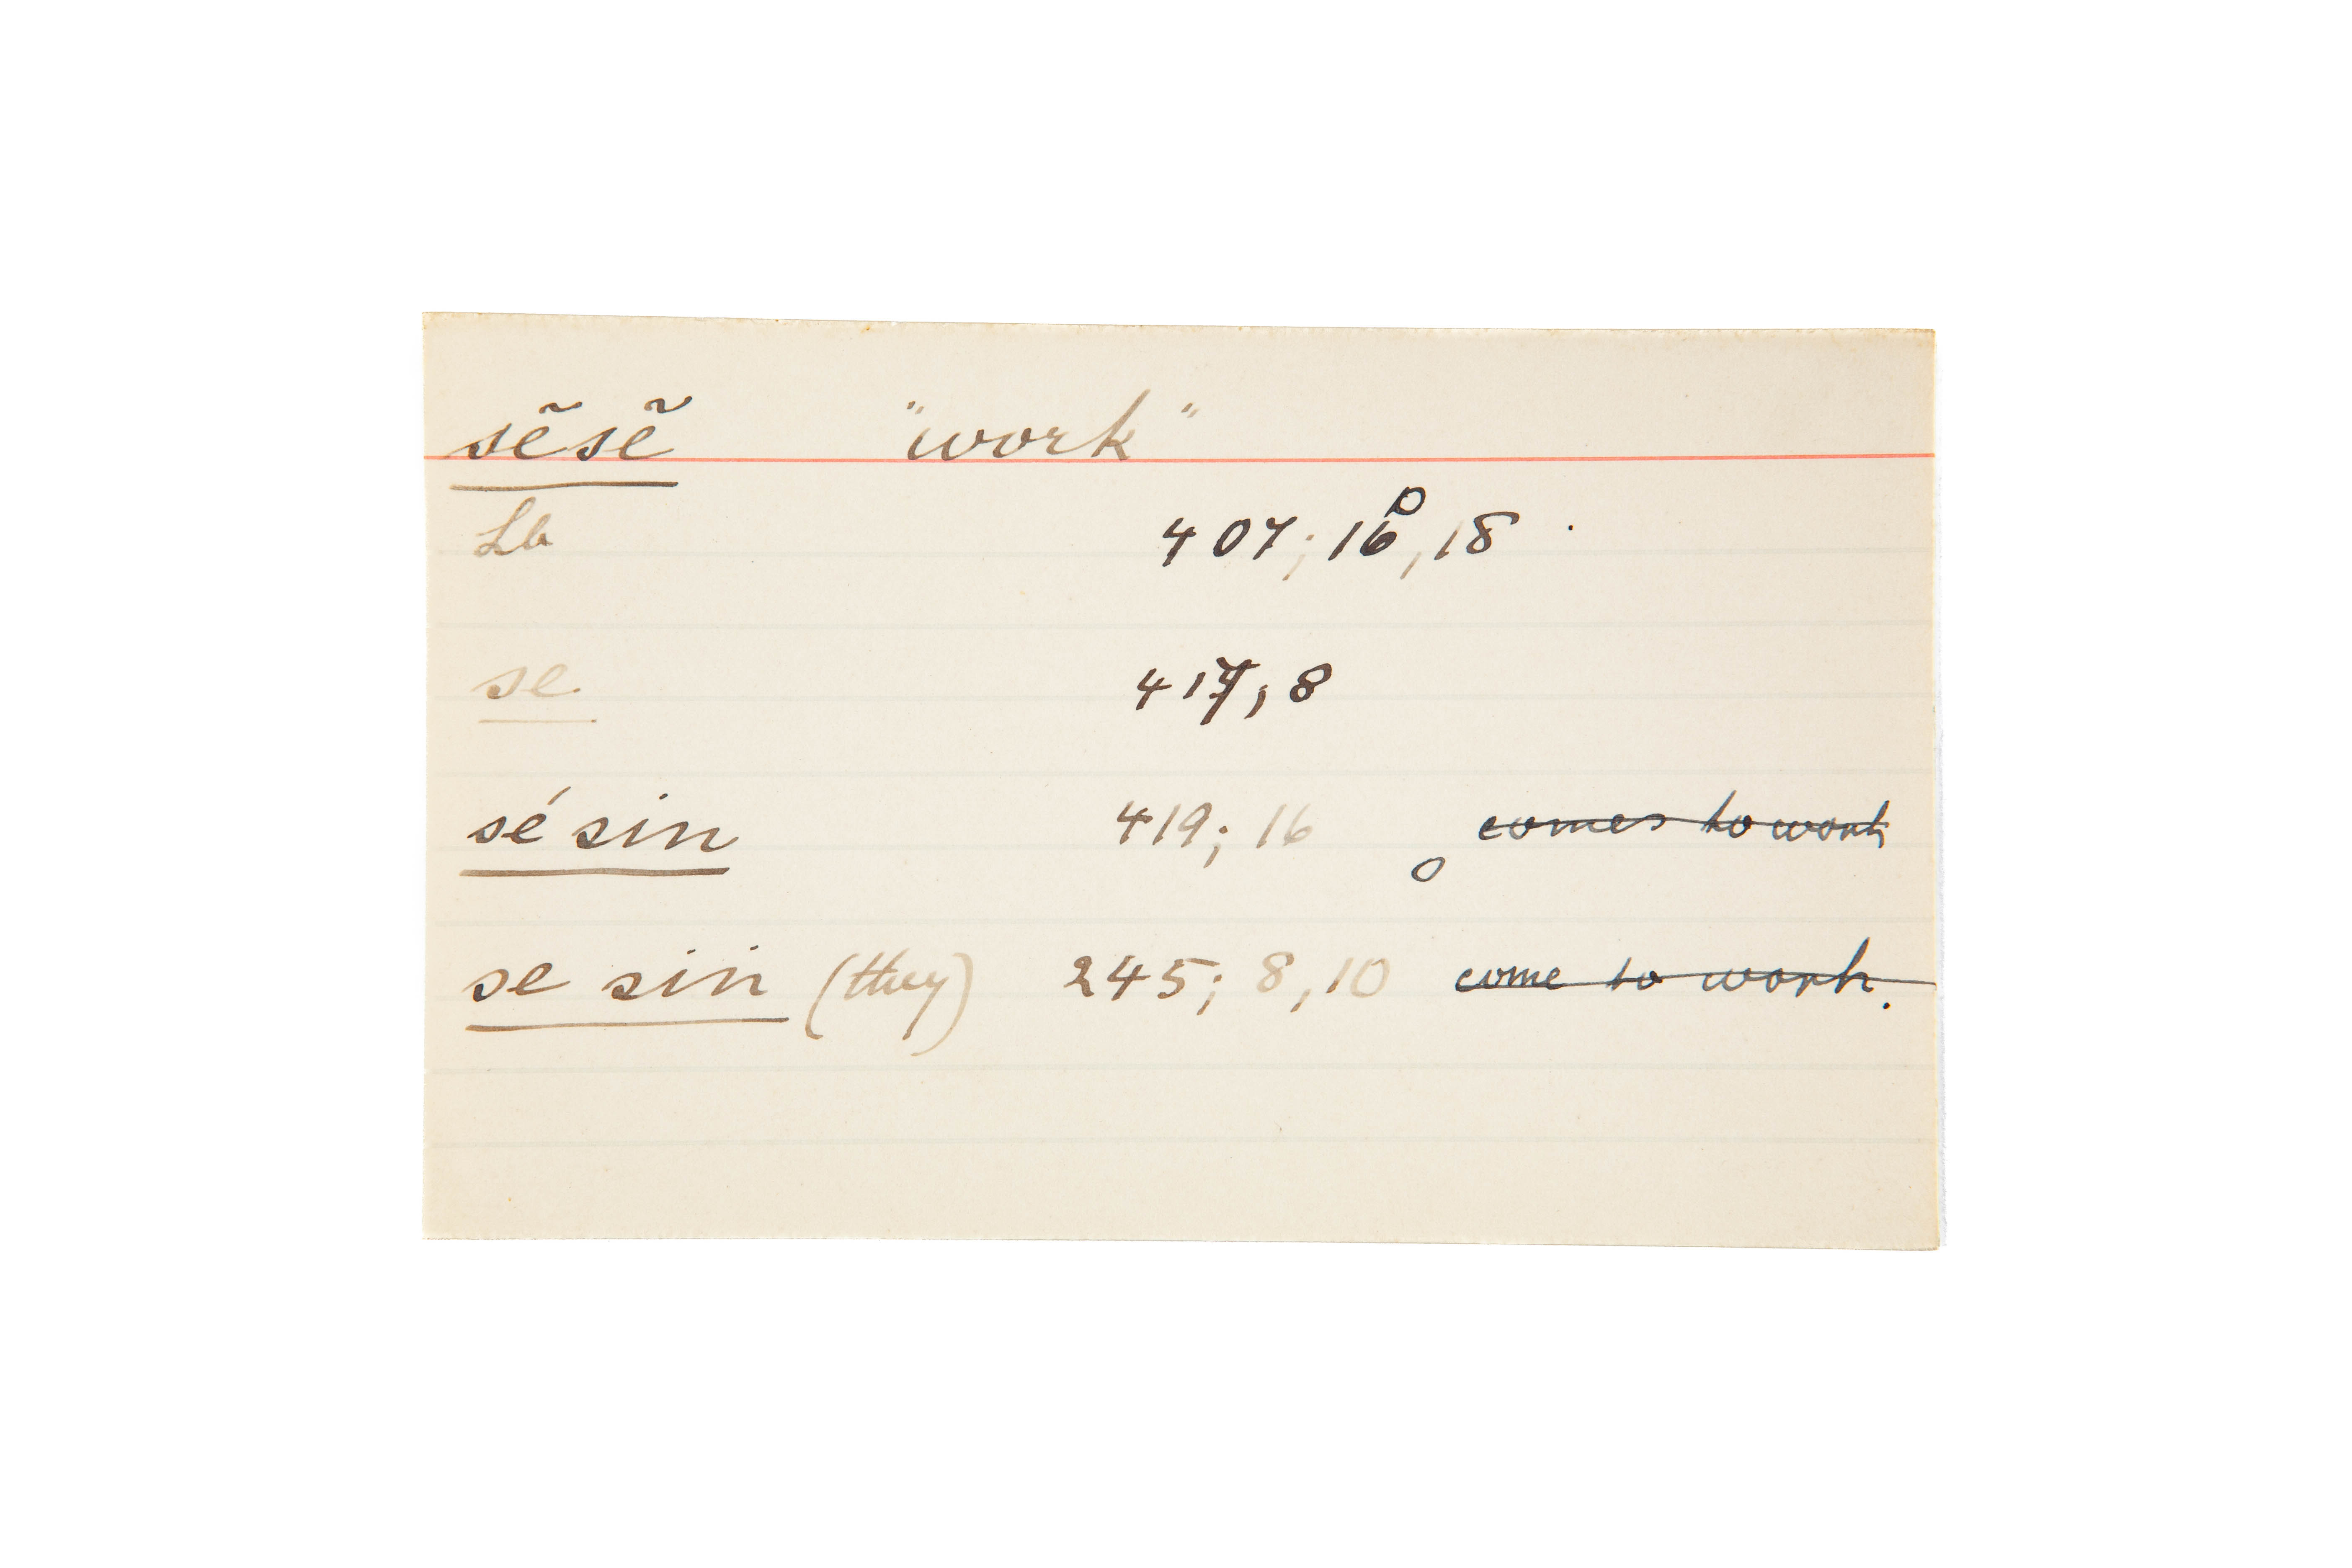 sẽsẽ "work"
Lb 407; 16, 18
se 417, 8
sé sin 419; 16 comes to work
se sin (they) 245; 8, 10 come to work.